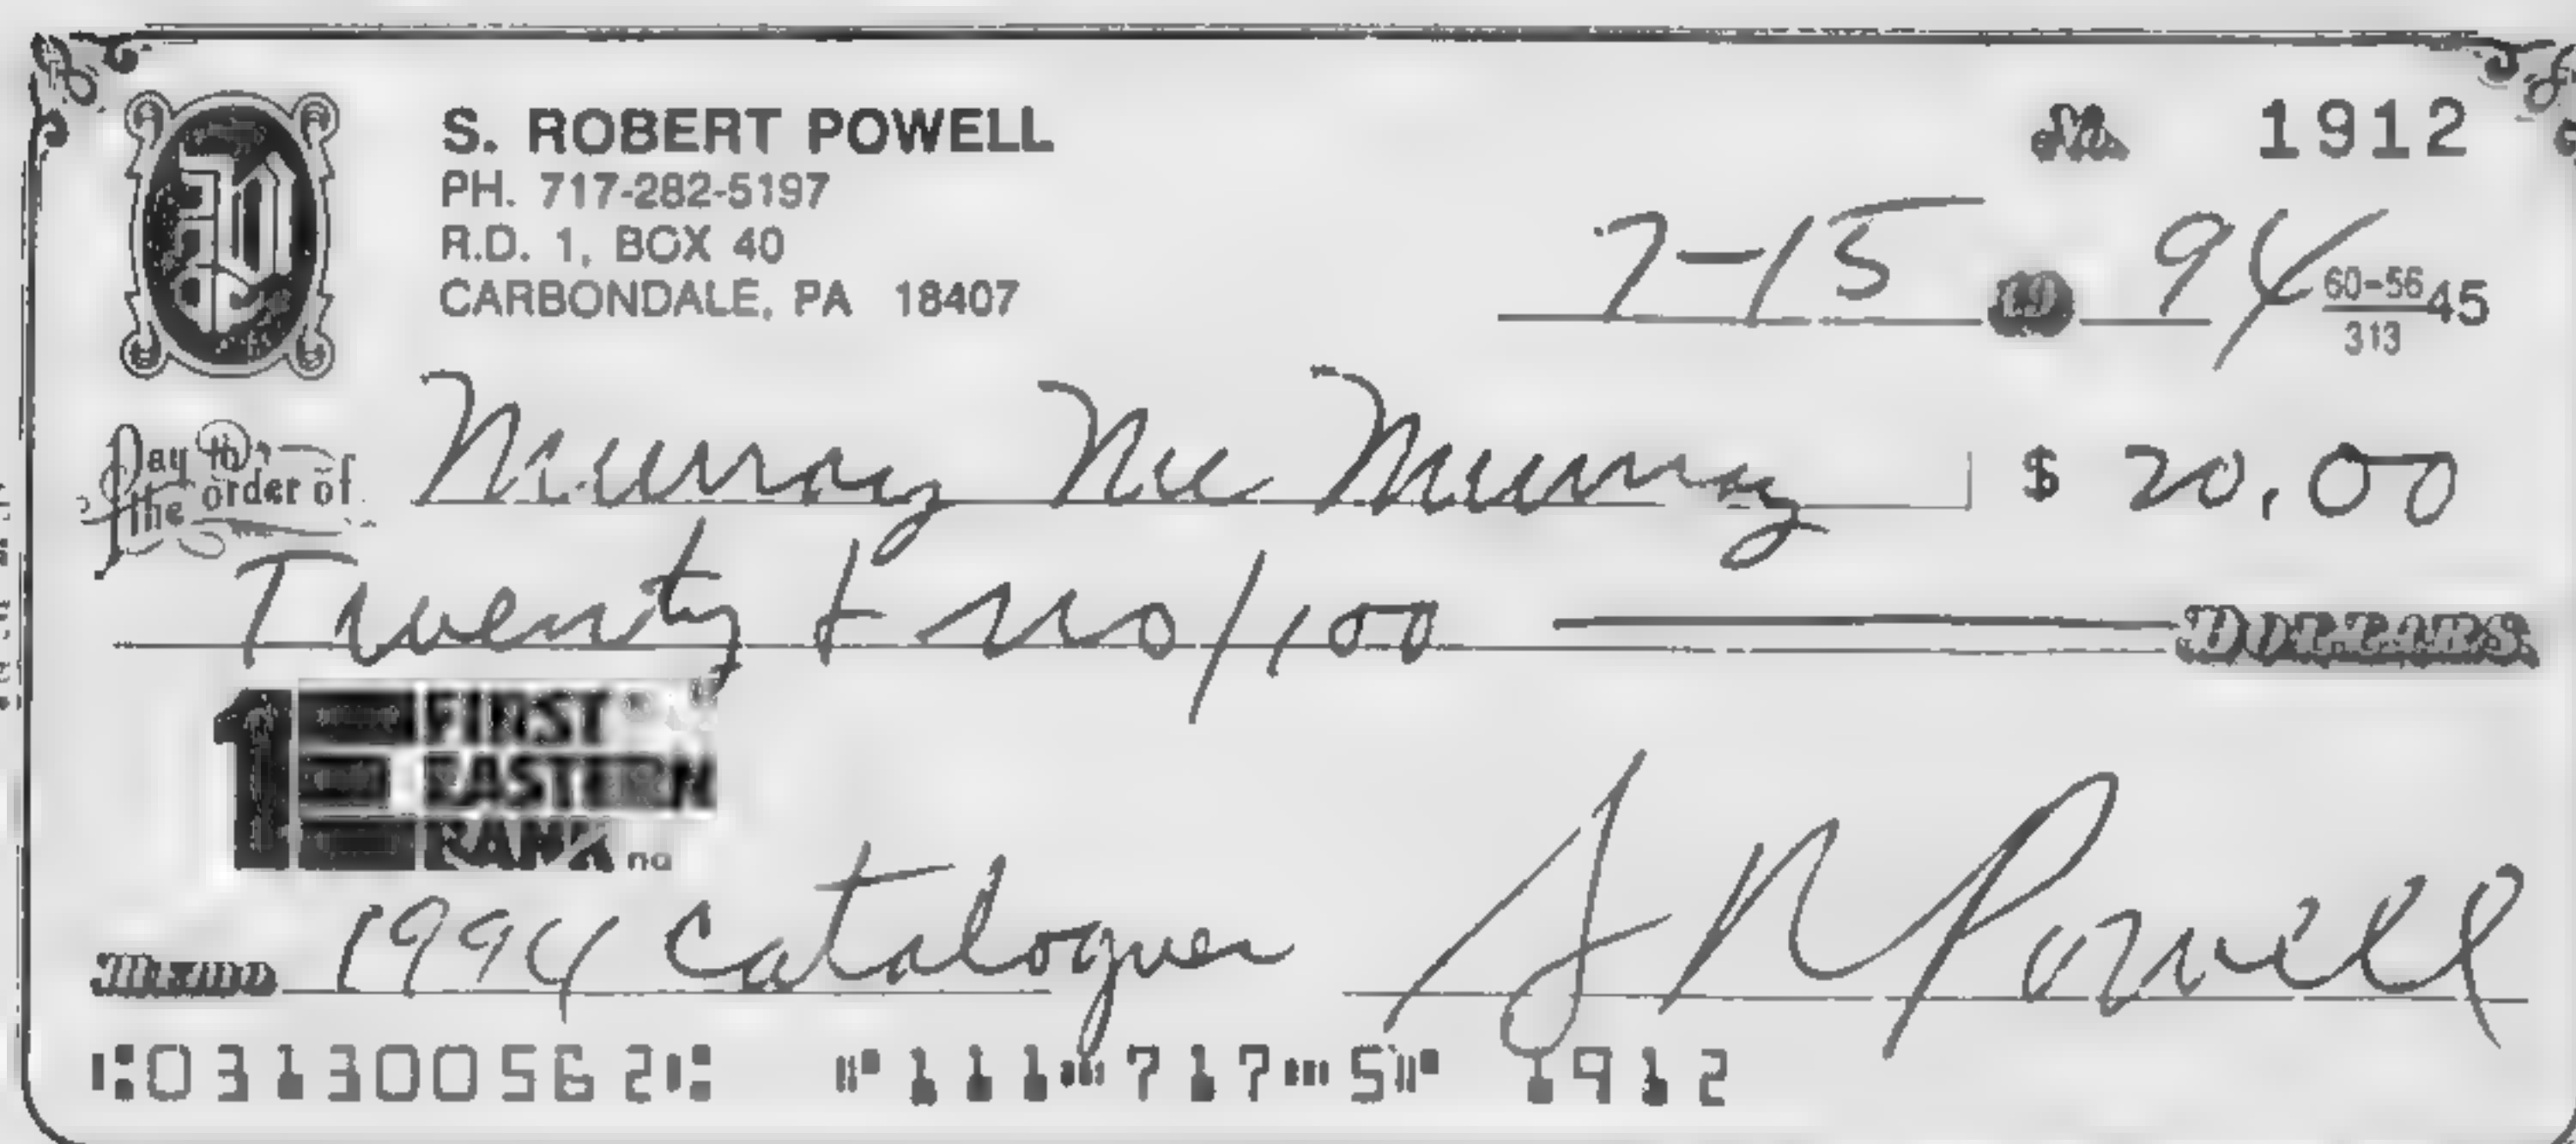 S. ROBERT POWELL
No. 1912
PH. 717-282-5197
R.D. 1, BOX 40
CARBONDALE, PA 18407
7-15 19 94
60-56 45
313
Pay to the order of Murray Mc Murray $ 20.00
Twenty & no/100 DOLLARS
1 FIRST
EASTERN
BANK na
Memo 1994 Catalogues S R Powell
⑆031300562⑆ ⑈111⑉717⑉5⑈ 1912